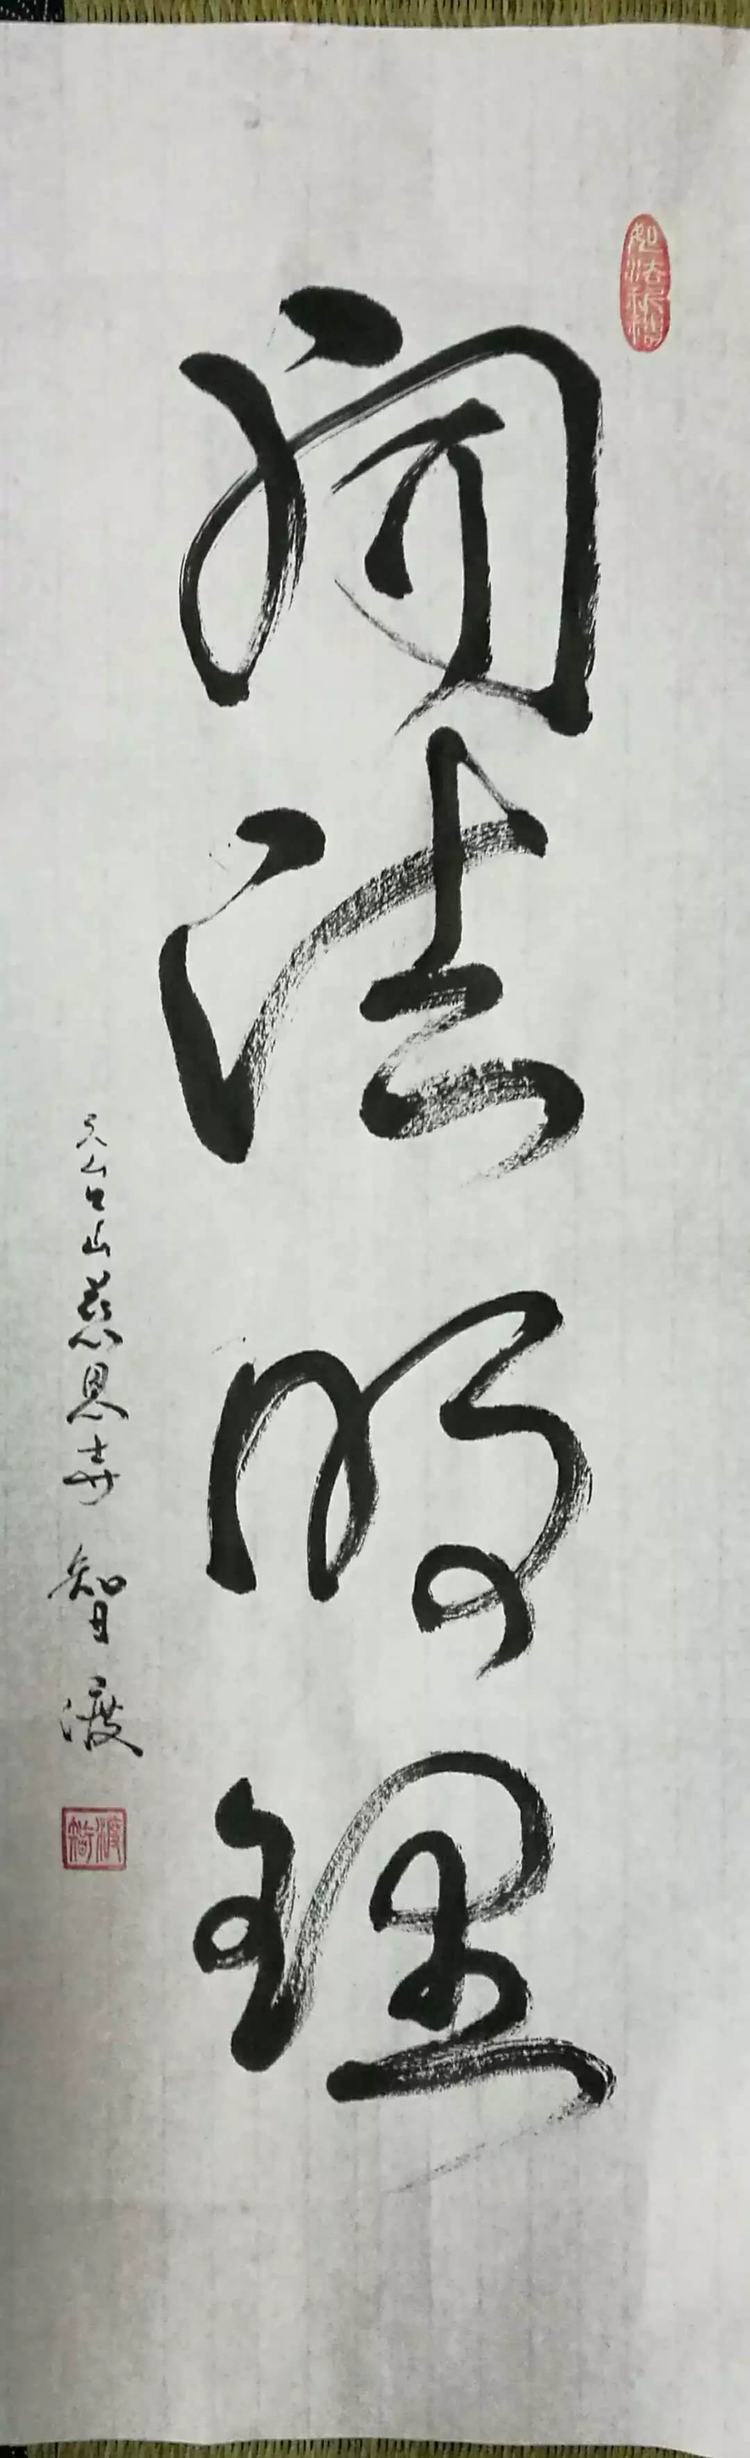 闻法明理
天台山慈恩寺 智渡